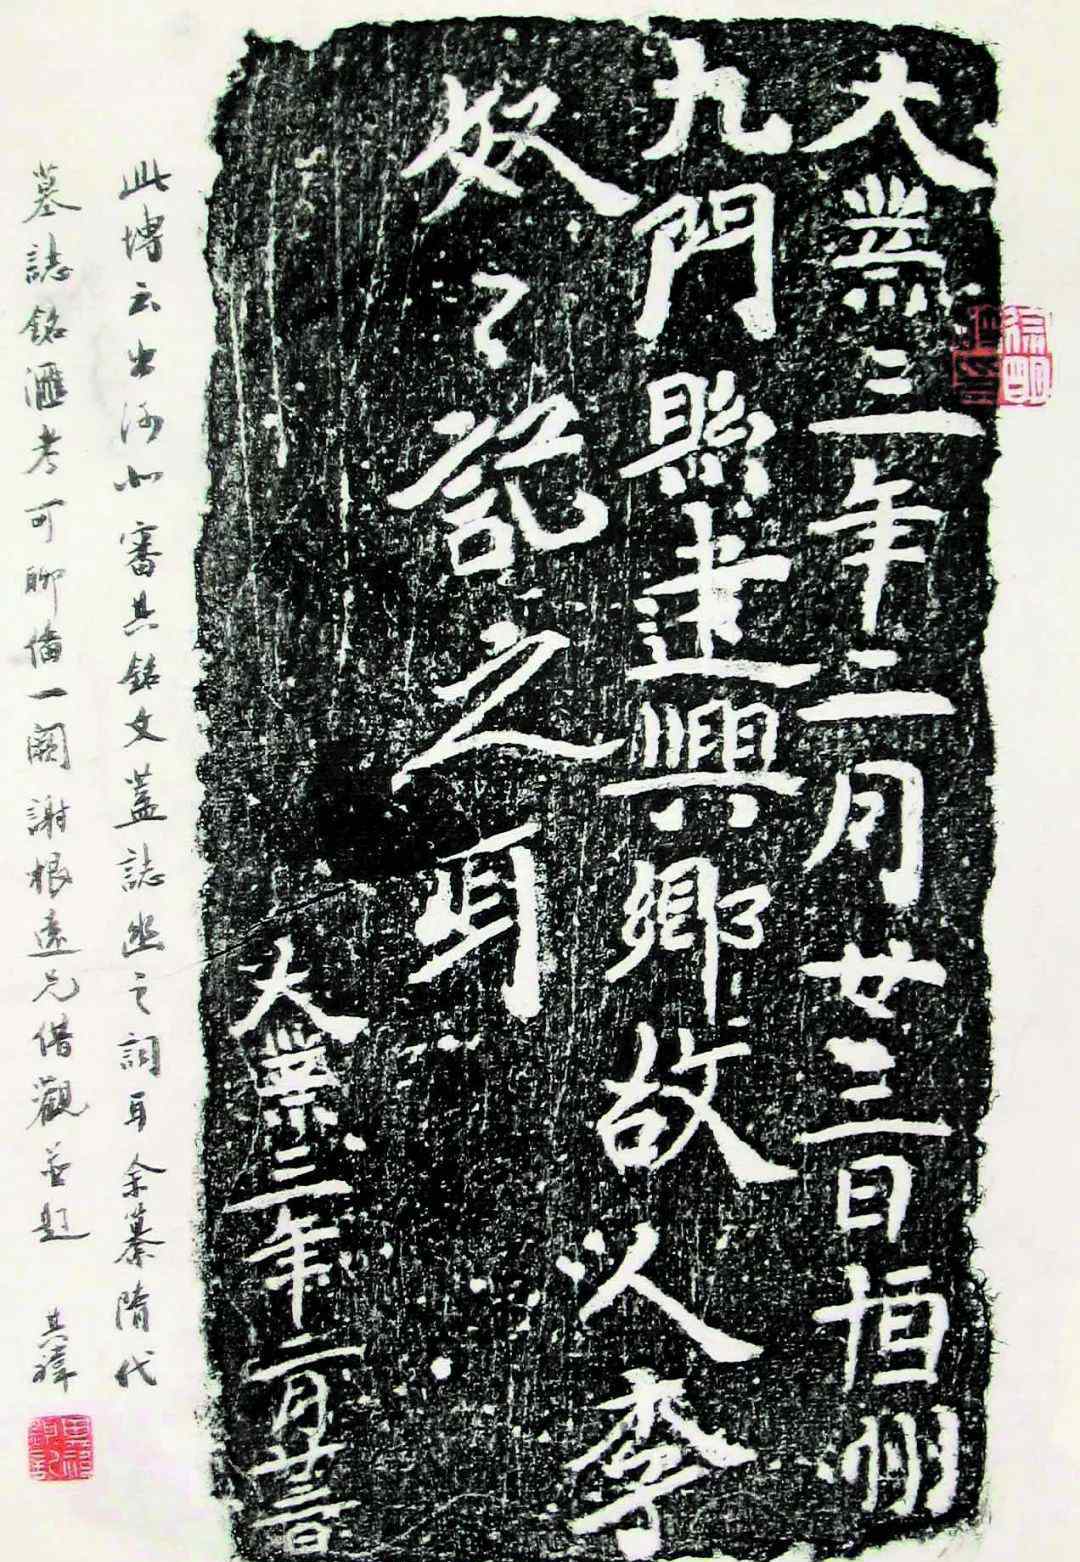 大業三年二月廿三日恒州
九門縣建興鄉故以李
奴〻記之耳
大業三年二月廿三日
此塼云出河北審其銘文蓋誌幽之詞耳余纂隋代
墓誌銘滙考可聊備一闕謝根遠兄借觀並題 其禕